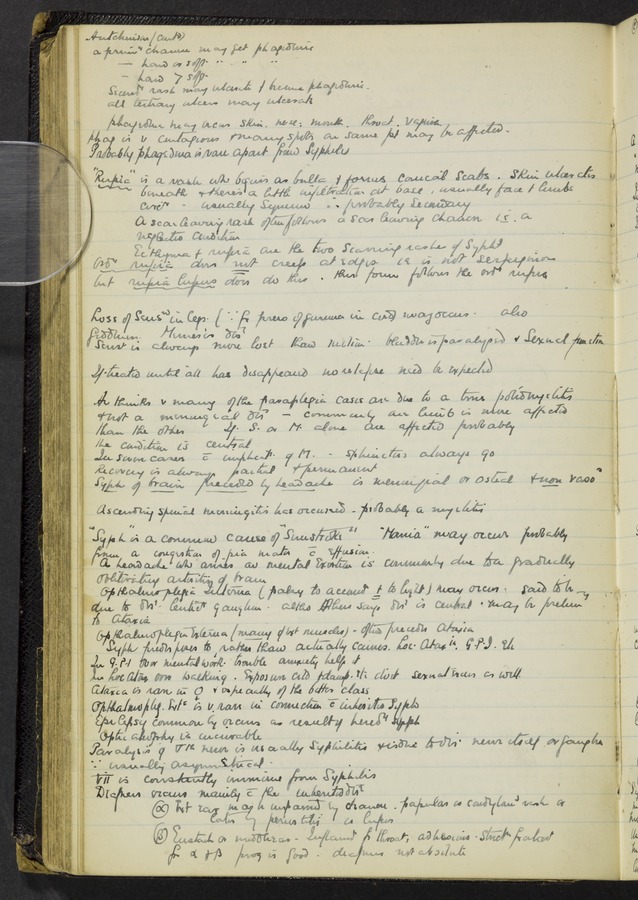 Hutchinson (contd)
a primy chancre may get phagedenic
— hard or soft " " "
— hard > soft
Second rash may ulcerate & become phagedenic.
all tertiary ulcers may ulcerate
phagedena may occur skin, nose, mouth, throat, vagina
phag is v contagious & many spots on same pt may be affected.
Probably phagedena is rare apart from Syphilis
"Rupia" is a rash wh begins as bulla & forms conical scabs. Skin ulcerates
beneath & there's a little infiltration at base, usually face & limbs
usually symm ∴ probably secondary
A scar leaving rash often follows a scar leaving chancre i.e. a
neglected condition
Ecthyma & rupia are the two scarring rashes of Syph
Ord rupia does not creep at edges i.e. is not serpiginous
but rupia lupus does do this. this form follows the ord rupia
Loss of Sensn in legs. (∵ fr press of gumma in cord may occur. also
Meninges dis
Sensn is always more lost than motion. bladder is paralysed & Sexual function
If treated until all has disappeared no relapse need be expected
He thinks v many of the paraplegia cases are due to a true poliomyelitis
& not a meningeal dis — commonly one limb is more affected
than the other If S. or M. alone are affected probably
the condition is central
In some cases c implicatn of M. — Sphincters always go
Recovery is always partial & permanent
Syph of brain preceded by headache is meningeal or osteal & non vaso
Ascending spinal meningitis has occurred - probably a myelitis
"Syph" is a common cause of "Sunstroke" "Mania" may occur probably
from a congestion of pia mater c effusion.
A headache wh arises on mental exertion is commonly due to a gradually
obliterating arteritis of brain
Ophthalmoplegia Interna (paley to accomt & to light) may occur. said to be
due to dis lentic ganglion. also says dis is central. may be prelim
to Ataxia
Ophthalmoplegia Externa (many of ext muscles) - often precedes ataxia
Syph predisposes to rather than actually causes Loc. Atax. G.P.I. etc
In G.P.I over mental work trouble anxiety help it
In loc Atax over walking. Exposure cold & damp. sexual excess as well
Ataxia is rare in ♀ & especially of the better class
Ophthalmopleg. Ext is v. rare in connection c inherited Syph
Epilepsy commonly occurs as result of hered Syph
Optic atrophy is incurable
Paralysis of Vth nerve is usually Syphilitic & is due to dis nerve itself or ganglion
∵ usually asymmetrical
VII is constantly immune from Syphilis
Deafness occurs mainly c the inherited dis
(α) Ext ear may be inflamed by chancre. papular or condylom rash or
lobes by periostitis or lupus
(β) Eustach or mid ear - Inflamd fr throat, adhesions - Strict
for α & β prog is good. deafness not absolute